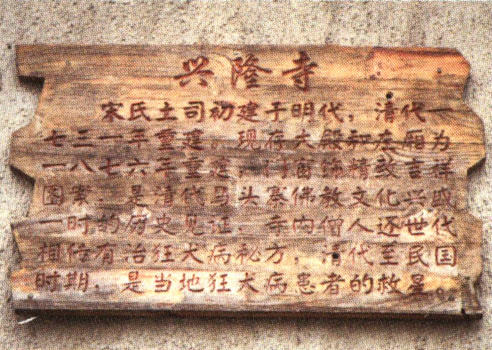 兴隆寺
宋氏土司初建于明代，清代一
七三一年重建。现存大殿和左厢为
一八七六年重建，门窗饰精致吉祥
图案，是清代马头寨佛教文化兴盛
一时的历史见证。寺内僧人还世代
相传有治狂犬病秘方，清代至民国
时期，是当地狂犬病患者的救星。